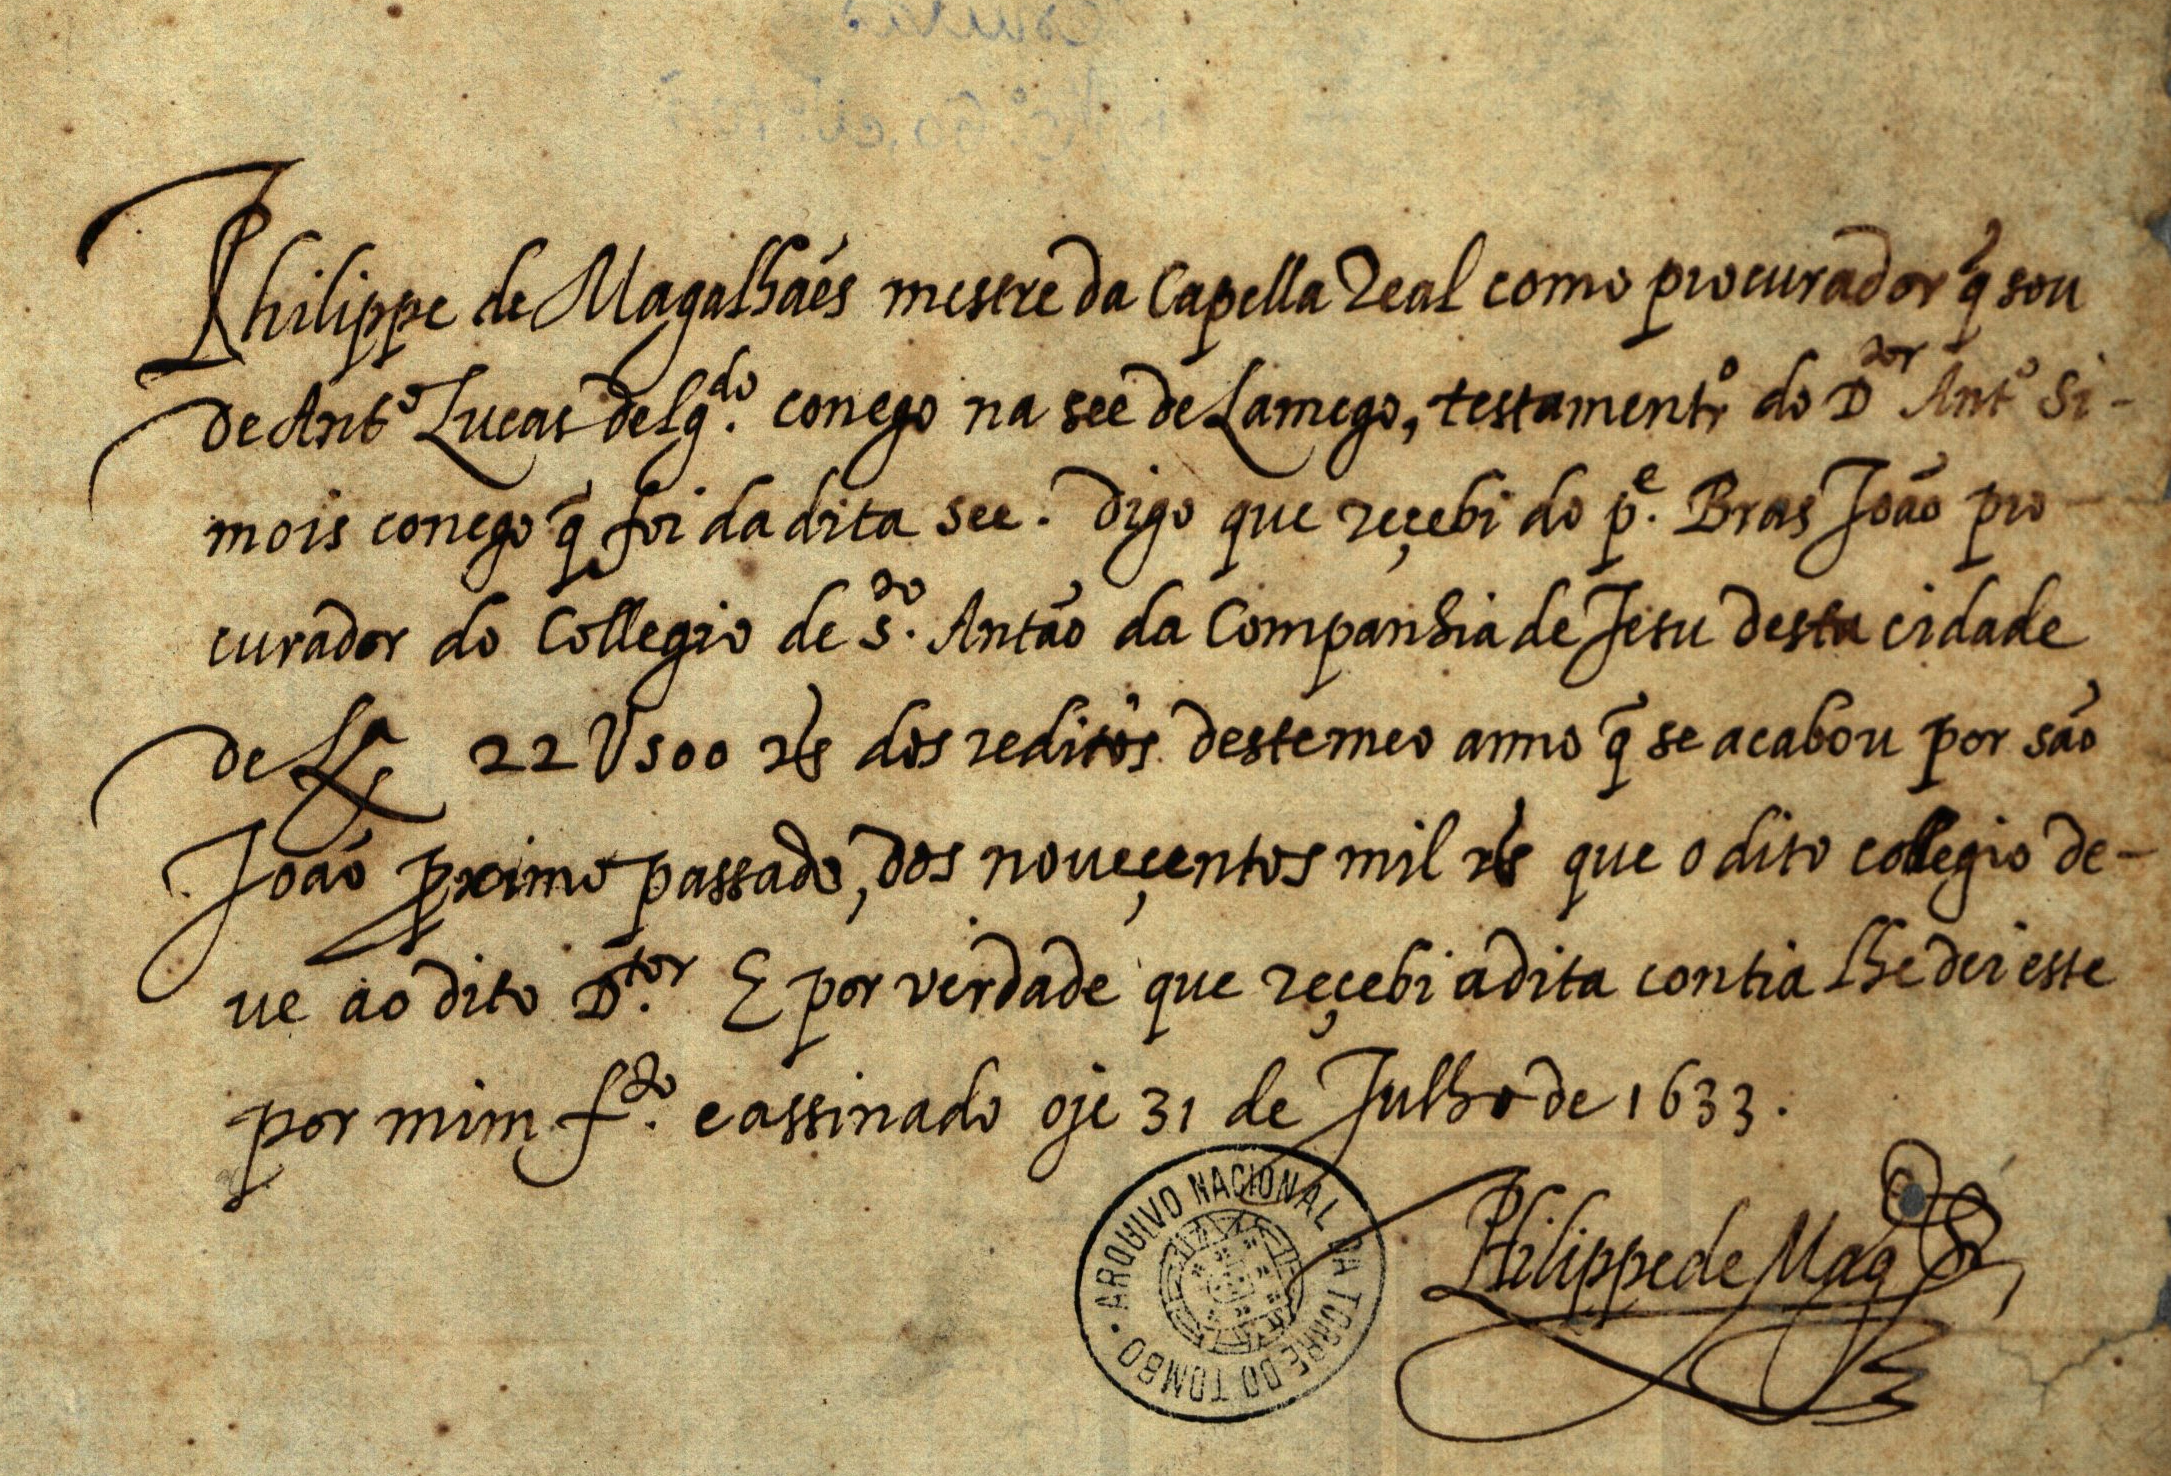 Philippe de Magalhães mestre da Capella Real como procurador q̃ sou
de Antº Lucas delgdo. conego na see de Lamego, testamentrº do Dor Antº Si-
mois conego q̃ foi da dita see. Digo que reçebi do pe. Bras João pro
curador do Collegio de sto. Antão da Companhia de Jesu desta cidade
de Lxa 22U500 rs dos reditos deste meo anno q̃ se acabou por são
João pximo passado, dos noueçentos mil rs que o dito collegio de-
ue ao dito Dtor. E por verdade que reçebi a dita contia lhe dei este
por mim fdo. e assinado oje 31 de Julho de 1633.
Philippe de Magês
ARQUIVO NACIONAL DA TORRE DO TOMBO